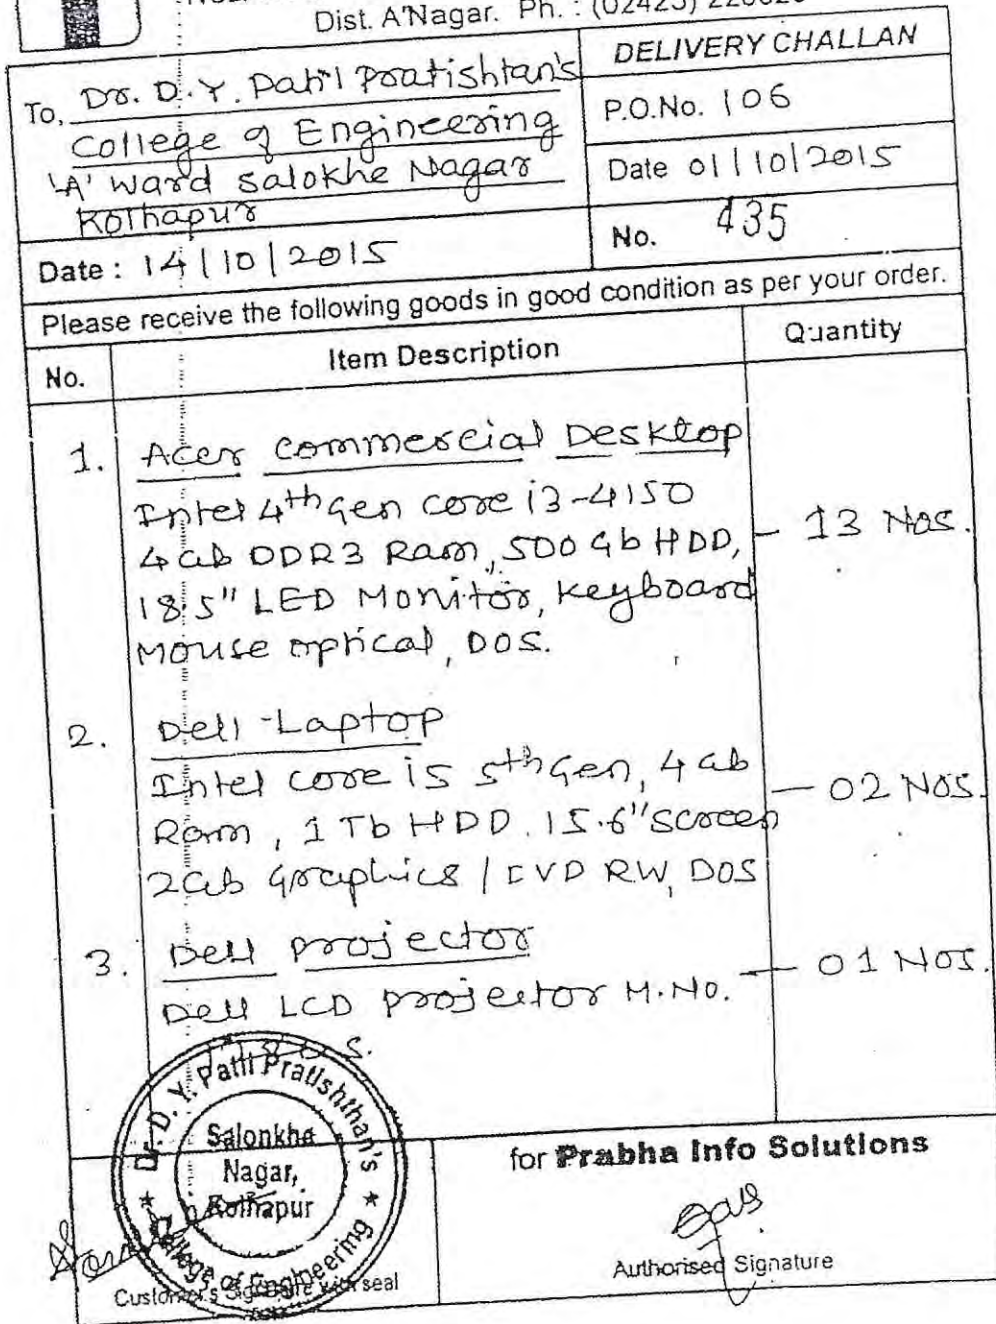 Dist. A'Nagar. Ph. : (02423)
To, Dr. D. Y. Patil Pratishtan's
College of Engineering
'A' Ward Salokhe Nagar
Kolhapur
DELIVERY CHALLAN
P.O.No. 106
Date 01/10/2015
Date : 14/10/2015
No. 435
Please receive the following goods in good condition as per your order.
No. Item Description Quantity
1. Acer Commercial Desktop
Intel 4th Gen core i3-4150
4 Gb DDR3 Ram, 500 Gb HDD, - 13 Nos.
18.5" LED Monitor, Keyboard
Mouse optical, DOS.
2. Dell Laptop
Intel core i5 5th Gen, 4 Gb - 02 Nos.
Ram, 1 Tb HDD. 15.6" screen
2Gb Graphics / DVD RW, DOS
3. Dell projector
Dell LCD projector M.No. - 01 Nos.
Dr. D. Y. Patil Pratishthan's
College of Engineering
Salonkhe
Nagar,
Kolhapur
for Prabha Info Solutions
Customer's Signature with seal
Authorised Signature